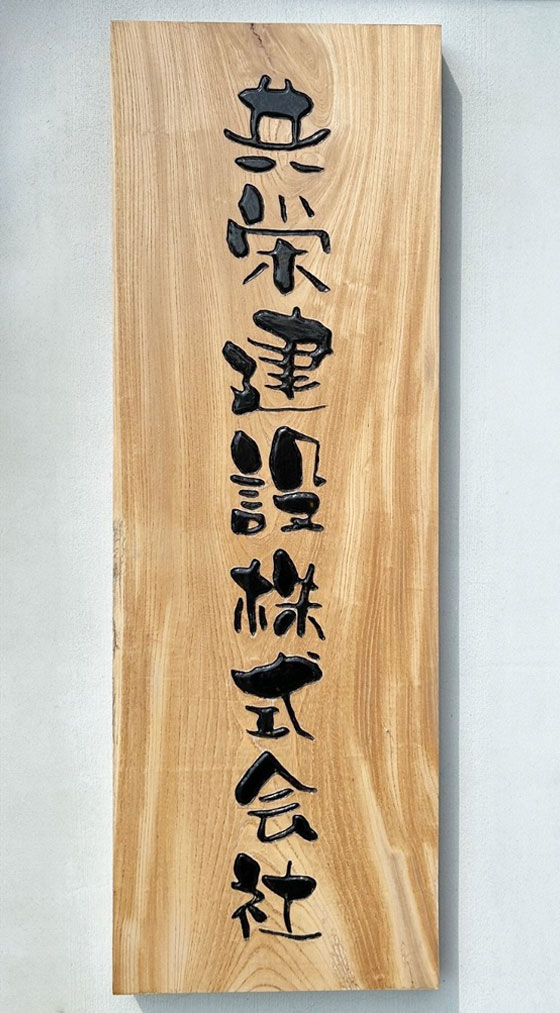 共栄建設株式会社